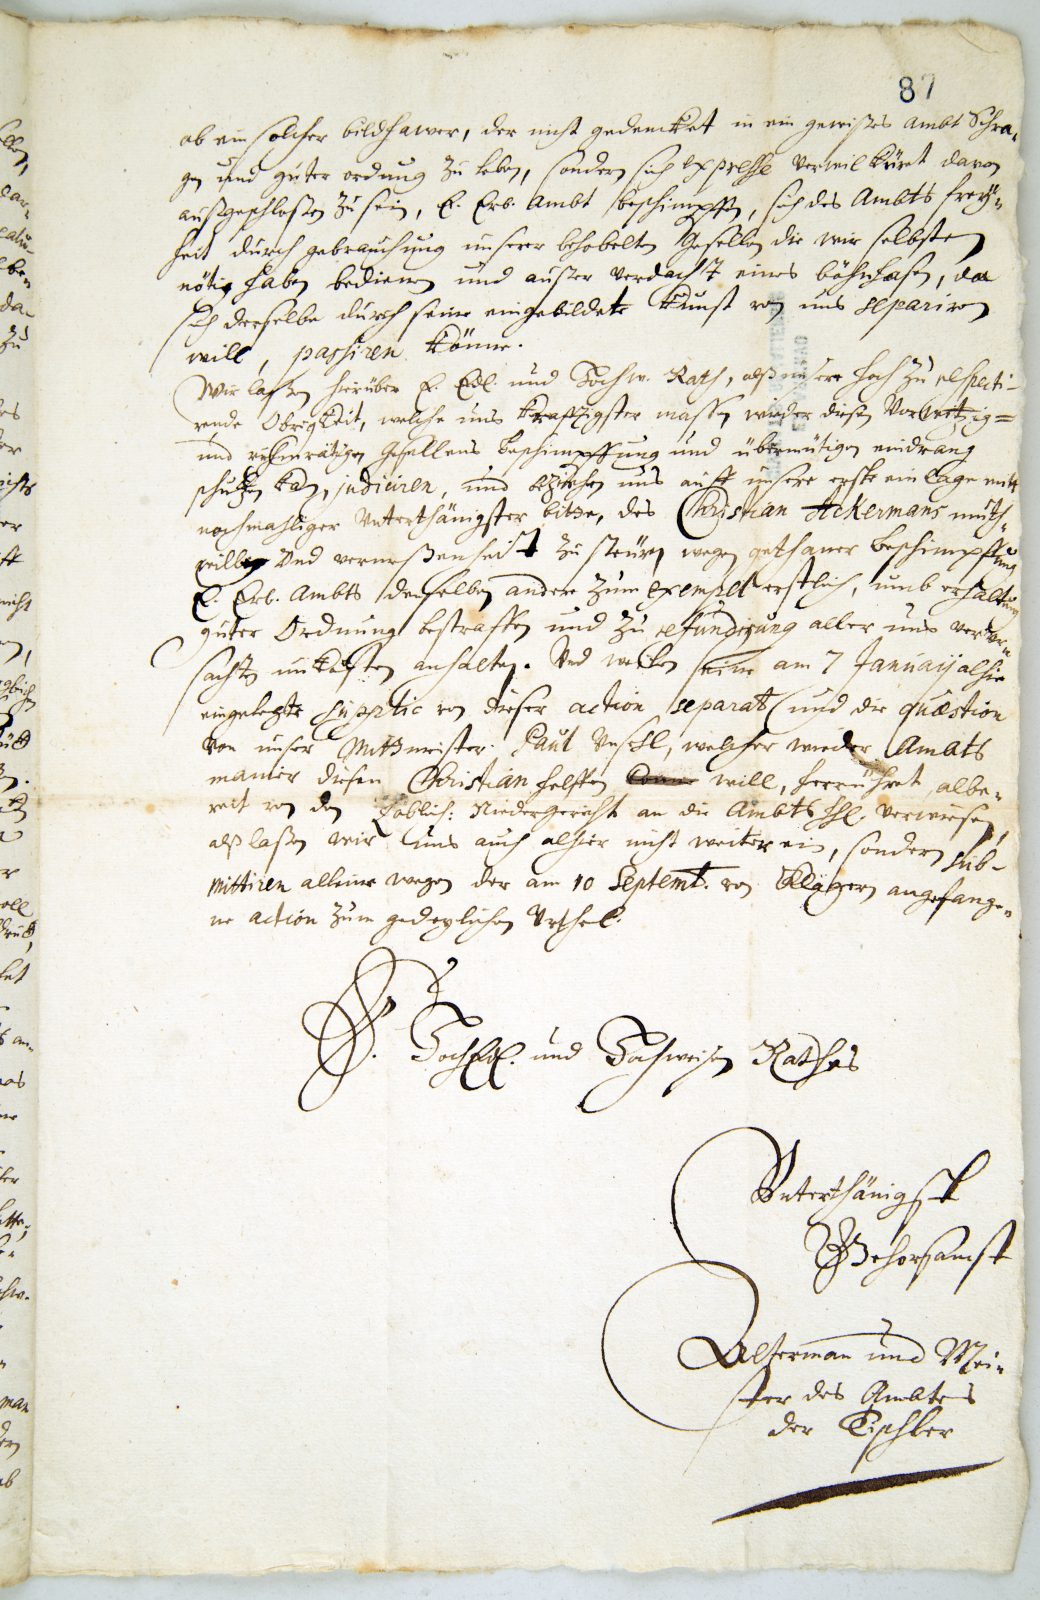 87
ob ein solcher bildhawer, der nicht gedencket in ein gewißes Ambt Schra-
gen und guter ordnung zu leben, sondern sich expresse verwillküret davon
außgeschloßen zu sein, E. Erb. Ambt beschimpffen, sich des Ambts frey-
heit durch gebrauchung unserer behobelten Gesellen die wir selbsten
nötig haben bedienen und außer verdacht eines böhnhasen, da
sich derselbe durch seine eingebildete Kunst von uns separiren
will, passiren könne.
Wir laßen hierüber E. Edl. und Hochw. Rath, alß unsere hoch zu respecti-
rende Obrigkeit, welche uns kräfftigster massen wieder diesen Vorwitzig-
und Gesellens beschimpffung und übermütigen eindrang
schutzen kan, judiciren, und uns auff unsere erste einlage mit
nochmahliger Unterthänigster bitte, des Christian Ackermans muth-
willen Und vermeßenheit zu steuren, wegen gethaner beschimpffung
E. Erb. Ambts denselben andern zum exempel ernstlich, umb erhaltung
guter Ordnung bestraffen und zu refundirung aller uns verur-
sachten unkosten anhalten. Und weilen seine am 7 Januarij alhie
eingelegte Supplic von dieser action separat und die quæstion
von unser Mitmeister Paul, welcher wieder Ambts
manier diesen Christian helffen will, herrühret, albe-
reit von dem Löblich: Niedergericht an die Ambts HH. verwiesen,
alß laßen wir uns auch alhier nicht weiter ein, sondern sub-
mittiren alleine wegen der am 10 Septemt. von Klägern angefange-
ne action zum gedeylichen Urthel.
E. HochEdl. und Hochweisen Rathes
Unterthänigst
Gehorsamst
Alterman und Mei-
ster des Ambtes
der Tischler